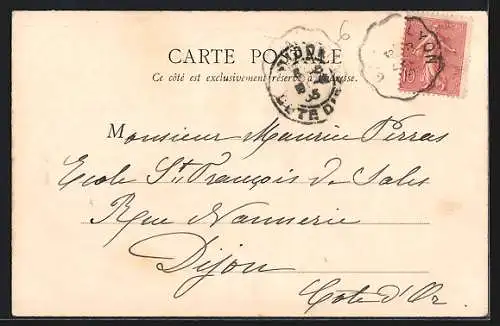 6
CARTE POSTALE
Ce côté est exclusivement réservé à l'adresse.
DIJON
COTE D'OR
LYON
10
Monsieur Maurice Perras
Ecole St. François de Sales
Rue Vannerie
Dijon
Cote d'Or